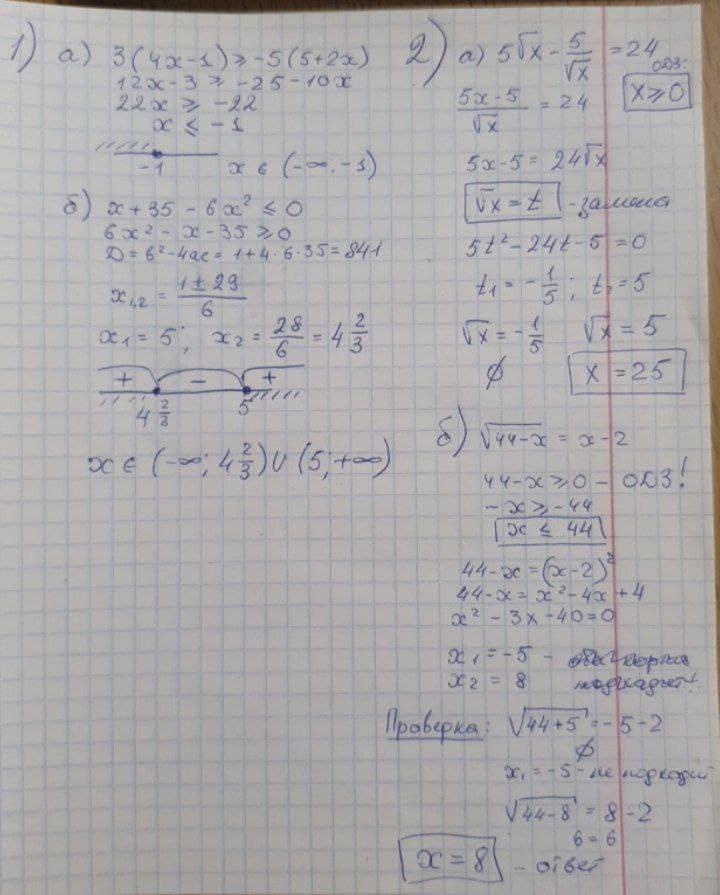 1) а) 3(4x-1) ≥ -5(5+2x)
12x-3 ≥ -25-10x
22x ≥ -22
x ≤ -1
-1 x ∈ (-∞, -1)
б) x+35-6x² ≤ 0
6x²-x-35 ≥ 0
D=б²-4ac=1+4·6·35=841
x₁,₂ = (1±29)/6
x₁=5; x₂=28/6=4 2/3
+ - +
4 2/3 5
x ∈ (-∞; 4 2/3) ∪ (5; +∞)
2) а) 5√x - 5/√x = 24
ОДЗ:
x ≥ 0
(5x-5)/√x = 24
5x-5 = 24√x
√x = t - замена
5t²-24t-5=0
t₁=-1/5; t₂=5
√x=-1/5 √x=5
∅ x=25
б) √(44-x) = x-2
44-x ≥ 0 - ОДЗ!
-x ≥ -44
x ≤ 44
44-x=(x-2)²
44-x=x²-4x+4
x²-3x-40=0
x₁=-5 -
x₂=8
Проверка: √(44+5)=-5-2
∅
x₁=-5-не подходит
√(44-8) = 8-2
6=6
x=8 - ответ